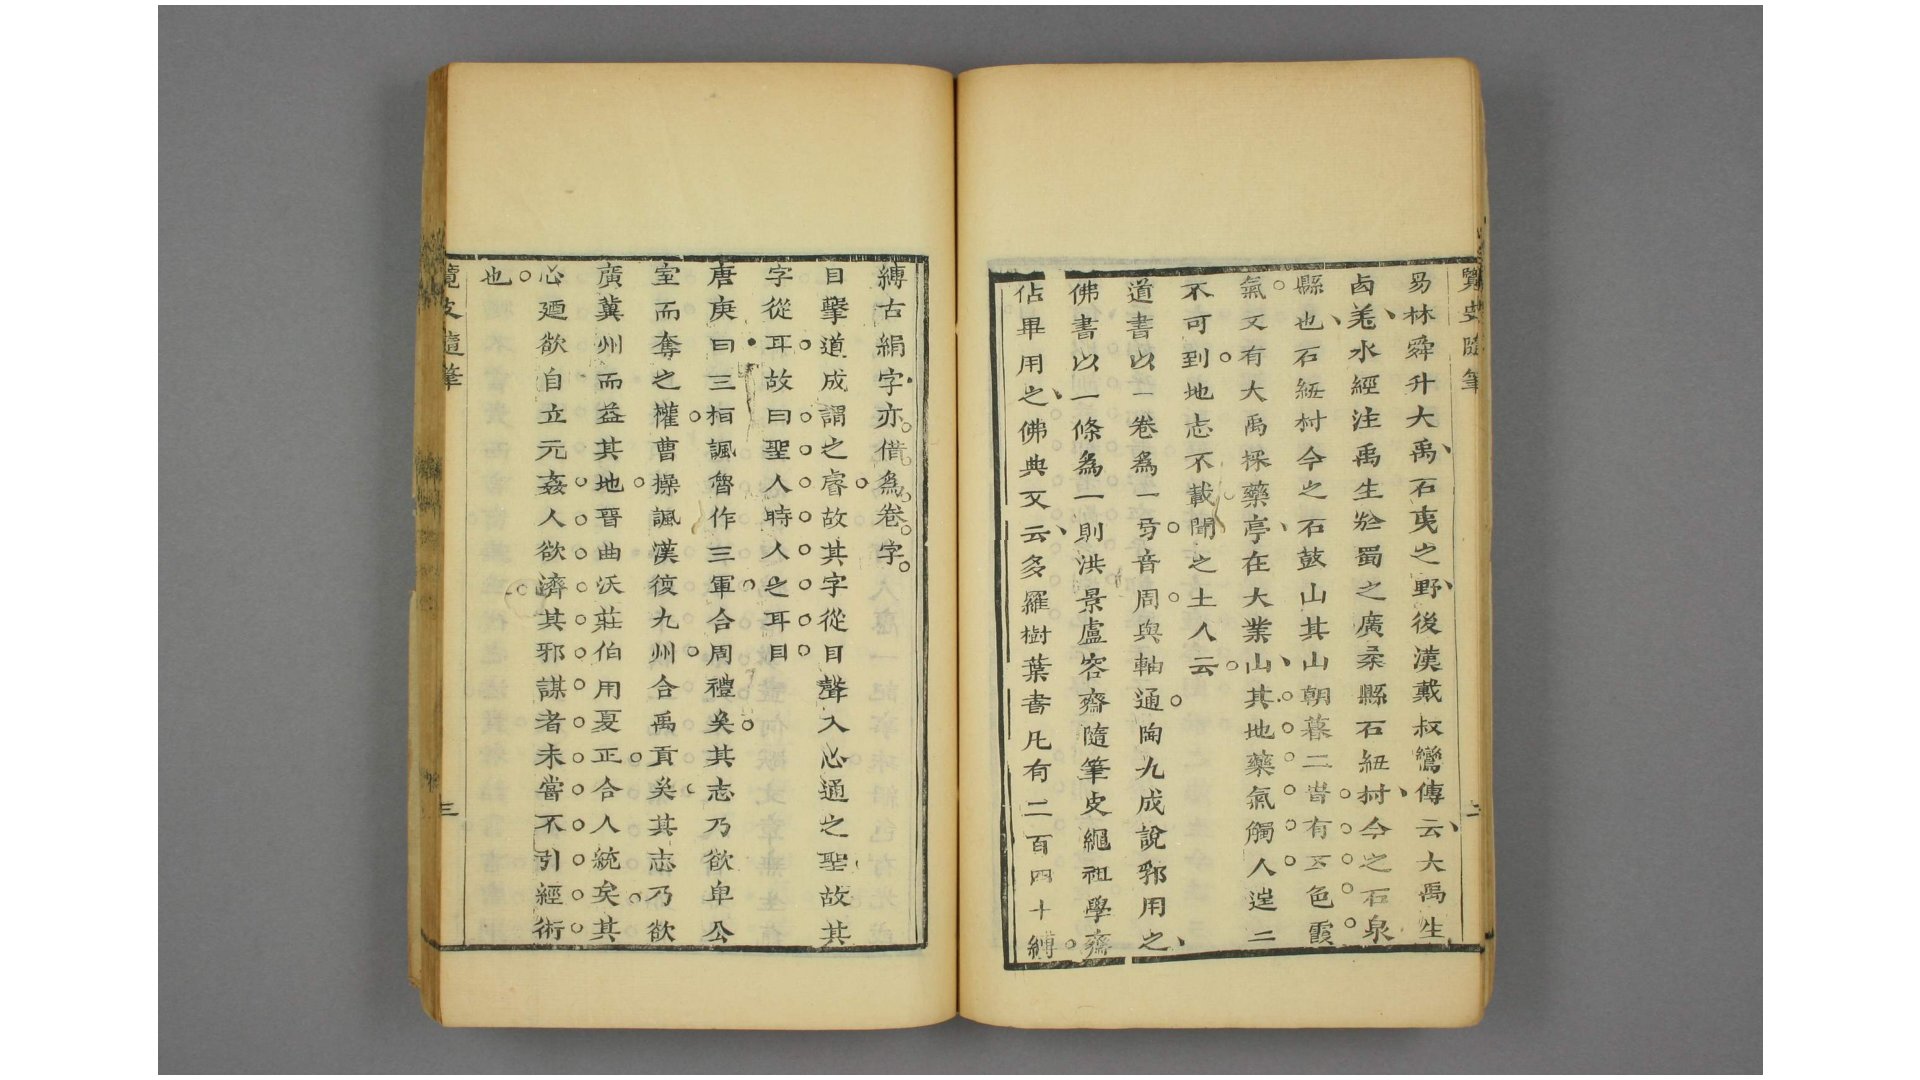 易林舜升大禹石夷之野後漢戴叔鸞傳云大禹生
西羌水經注禹生於蜀之廣柔縣石紐村今之石泉
縣也石紐村今之石鼓山其山朝暮二時有五色霞
氣又有大禹採藥亭在大業山其地藥氣觸人逵二
不可到地志不載聞之土人云
道書以一卷為一弓音周與軸通陶九成說郛用之
佛書以一條為一則洪景盧容齋隨筆史繩祖學齋
佔畢用之佛典又云多羅樹葉書凡有二百四十縛
縛古絹字亦借為卷字
目擊道成謂之睿故其字從目聲入心通之聖故其
字從耳故曰聖人時人之耳目
唐庚曰三桓諷魯作三軍合周禮矣其志乃欲卑公
室而奪之權曹操諷漢復九州合禹貢矣其志乃欲
廣冀州而益其地晉曲沃莊伯用夏正合人統矣其
心廼欲自立元姦人欲濟其邪謀者未嘗不引經術
也
三